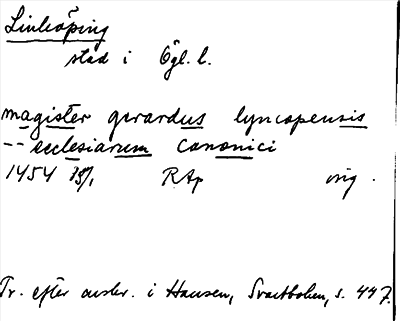 Linköping
stad i Ögl. l.
magister gerardus lyncopensis
-- ecclesiarum canonici
1454 15/1 RAp orig.
Tr. efter avskr. i Hausen, Svartboken, s. 447.